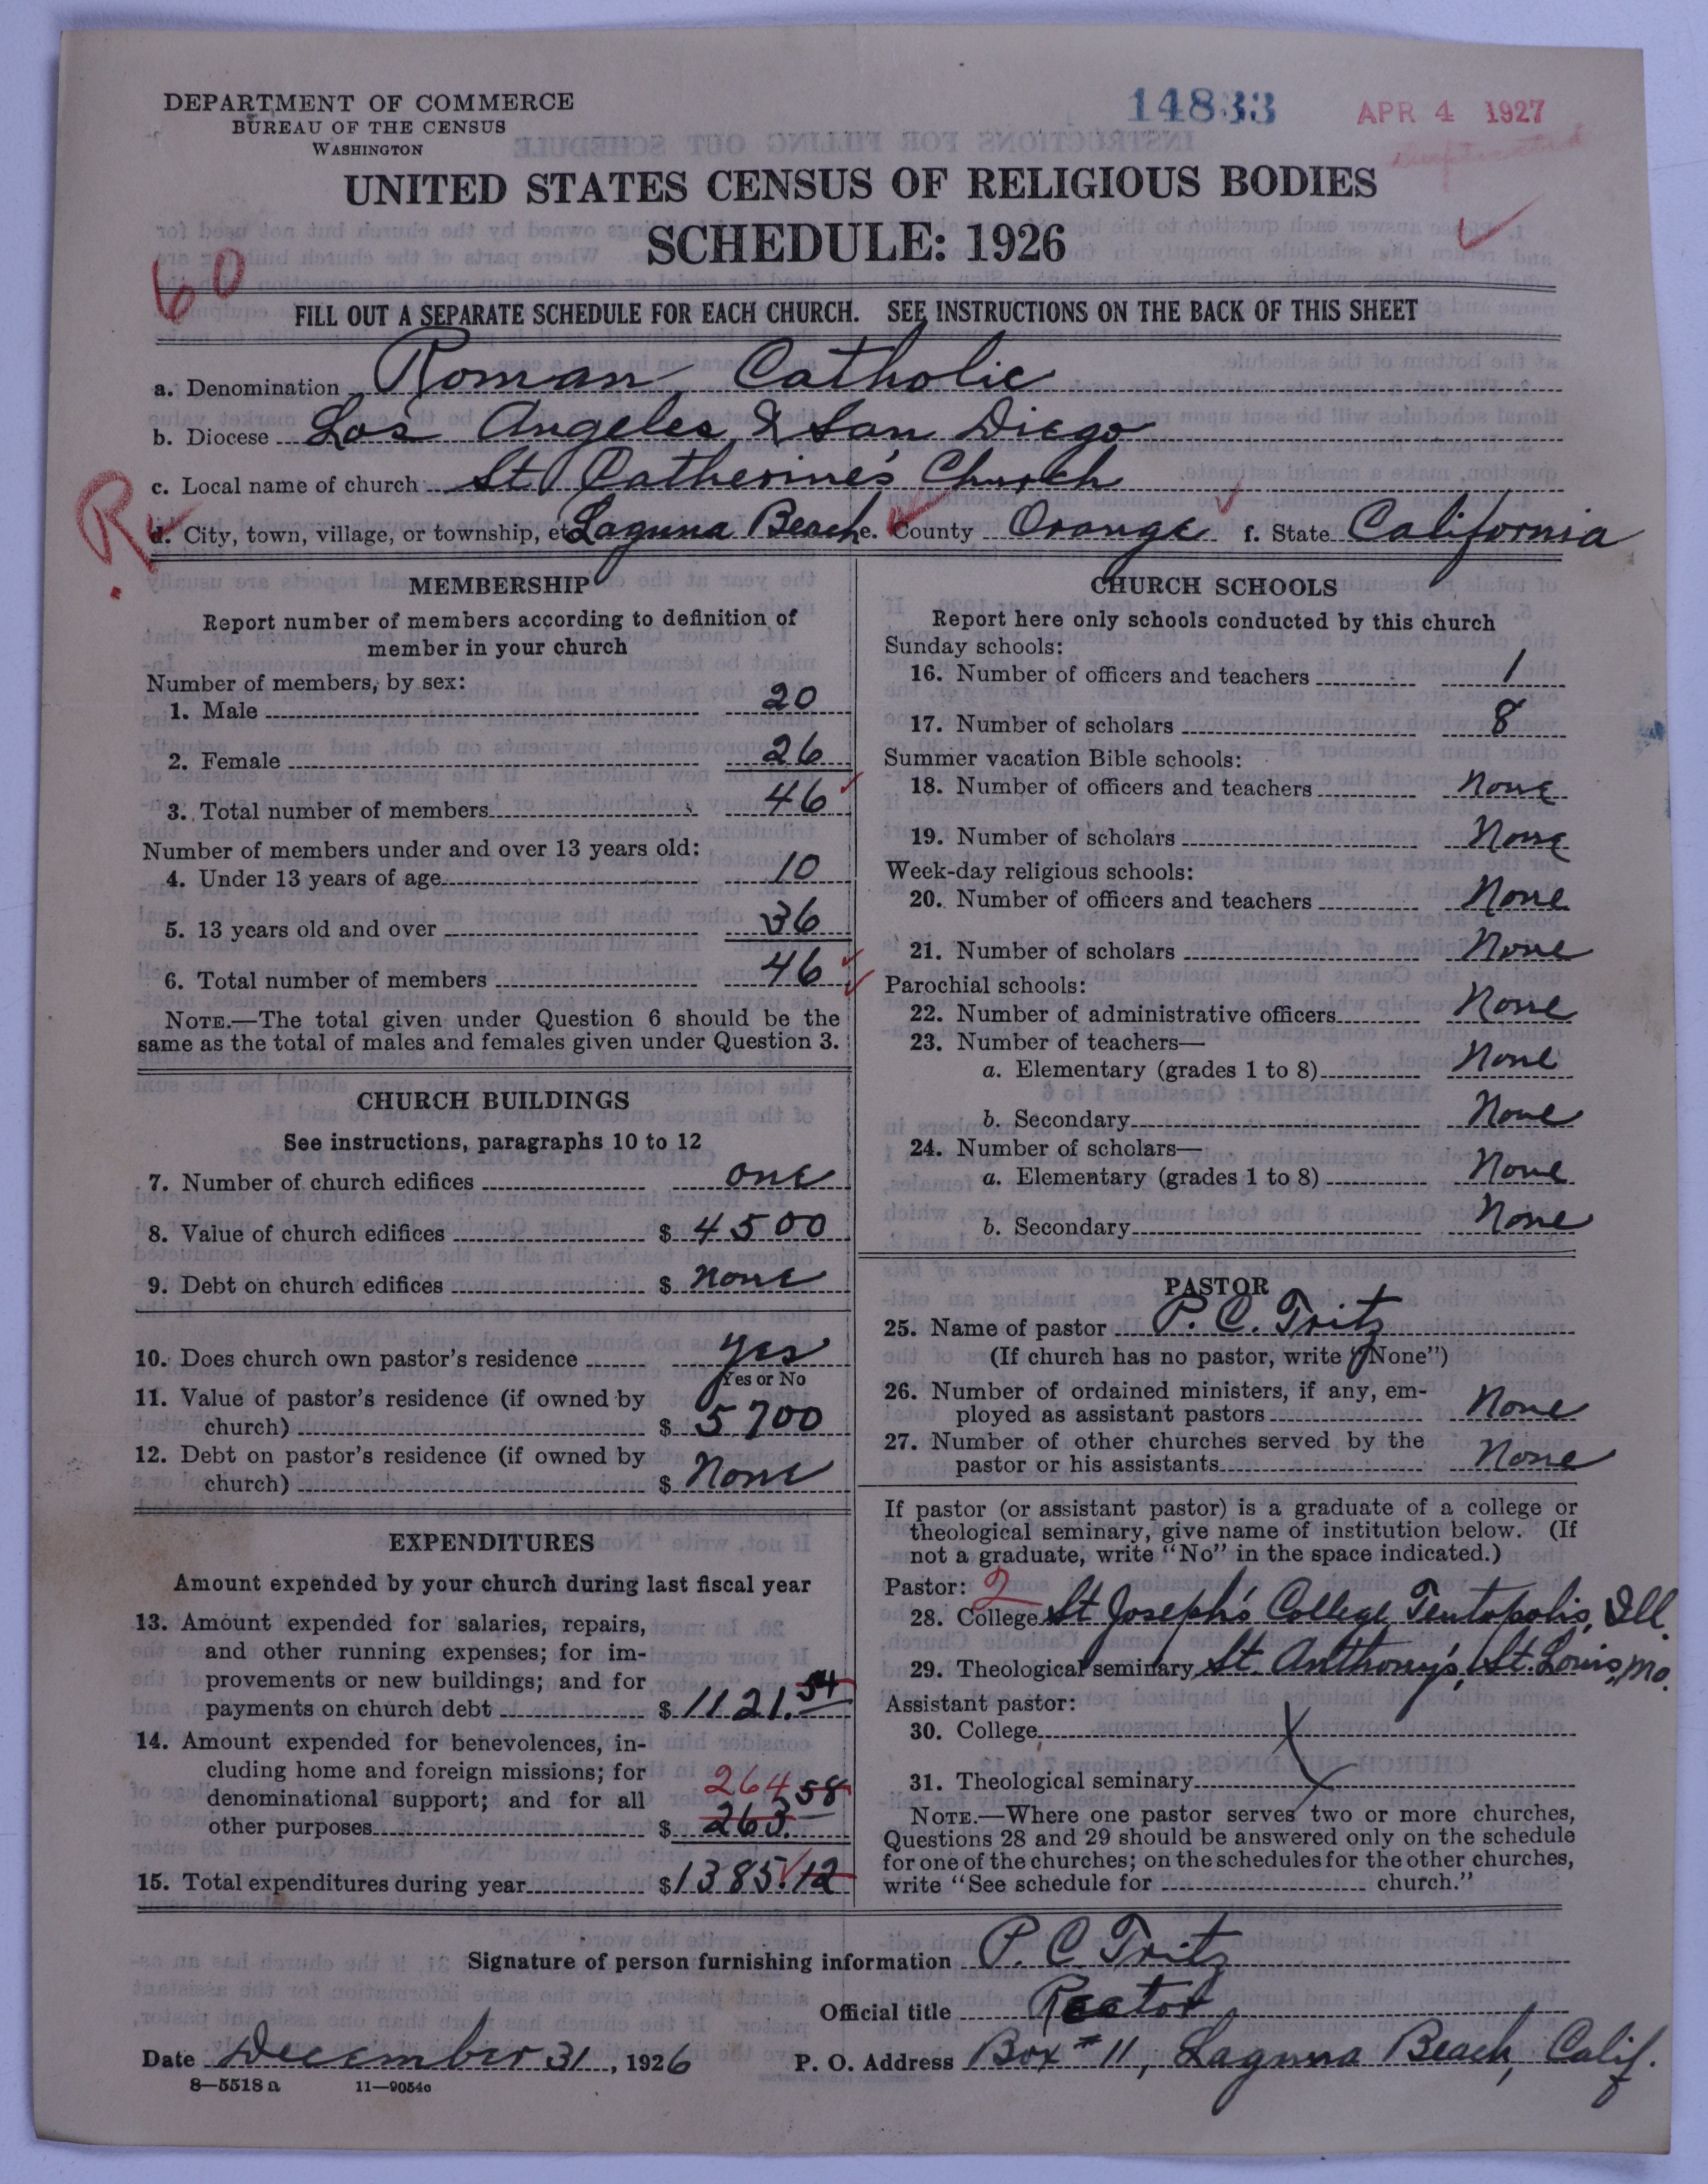 DEPARTMENT OF COMMERCE
BUREAU OF THE CENSUS
WASHINGTON
14833
APR 4 1927
UNITED STATES CENSUS OF RELIGIOUS BODIES
SCHEDULE: 1926
60
FILL OUT A SEPARATE SCHEDULE FOR EACH CHURCH. SEE INSTRUCTIONS ON THE BACK OF THIS SHEET
a. Denomination Roman Catholic
b. Diocese Los Angeles & San Diego
c. Local name of church St Catherine's Church
R
d. City, town, village, or township, etc. Laguna Beach e. County Orange f. State California
MEMBERSHIP
Report number of members according to definition of
member in your church
Number of members, by sex:
1. Male 20
2. Female 26
3. Total number of members 46
Number of members under and over 13 years old:
4. Under 13 years of age 10
5. 13 years old and over 36
6. Total number of members 46
NOTE.—The total given under Question 6 should be the
same as the total of males and females given under Question 3.
CHURCH BUILDINGS
See instructions, paragraphs 10 to 12
7. Number of church edifices one
8. Value of church edifices $ 4500
9. Debt on church edifices $ none
10. Does church own pastor's residence yes
Yes or No
11. Value of pastor's residence (if owned by
church) $ 5700
12. Debt on pastor's residence (if owned by
church) $ None
EXPENDITURES
Amount expended by your church during last fiscal year
13. Amount expended for salaries, repairs,
and other running expenses; for im-
provements or new buildings; and for
payments on church debt $ 1121.54
14. Amount expended for benevolences, in-
cluding home and foreign missions; for
264
denominational support; and for all
other purposes $ 263.58
15. Total expenditures during year $ 1385.12
CHURCH SCHOOLS
Report here only schools conducted by this church
Sunday schools:
16. Number of officers and teachers 1
17. Number of scholars 8
Summer vacation Bible schools:
18. Number of officers and teachers None
19. Number of scholars None
Week-day religious schools:
20. Number of officers and teachers None
21. Number of scholars None
Parochial schools:
22. Number of administrative officers None
23. Number of teachers—
a. Elementary (grades 1 to 8) None
b. Secondary None
24. Number of scholars—
a. Elementary (grades 1 to 8) None
b. Secondary None
PASTOR
25. Name of pastor P. C. Tritz
(If church has no pastor, write "None")
26. Number of ordained ministers, if any, em-
ployed as assistant pastors None
27. Number of other churches served by the
pastor or his assistants None
If pastor (or assistant pastor) is a graduate of a college or
theological seminary, give name of institution below. (If
not a graduate, write "No" in the space indicated.)
Pastor: 2
28. College St Joseph's College Teutopolis, Ill.
29. Theological seminary St. Anthony's, St. Louis, Mo.
Assistant pastor:
30. College
31. Theological seminary
NOTE.—Where one pastor serves two or more churches,
Questions 28 and 29 should be answered only on the schedule
for one of the churches; on the schedules for the other churches,
write "See schedule for church."
Signature of person furnishing information P. C. Tritz
Official title Rector
Date December 31, 1926 P. O. Address Box # 11, Laguna Beach, Calif.
8—5518 a 11—9054c